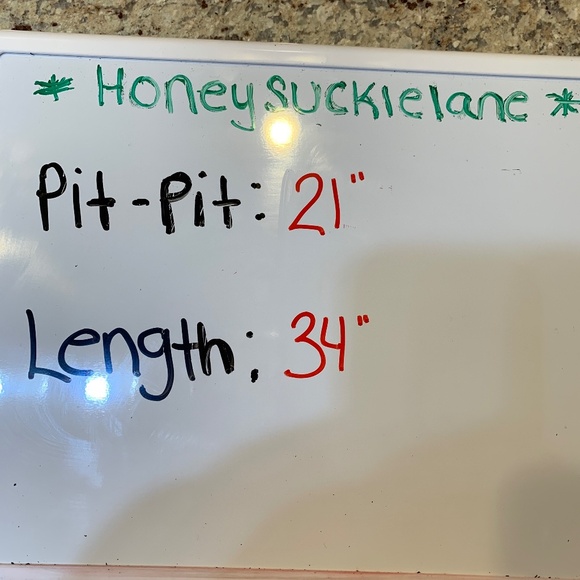 * Honeysucklelane *
Pit-Pit: 21"
Length: 34"